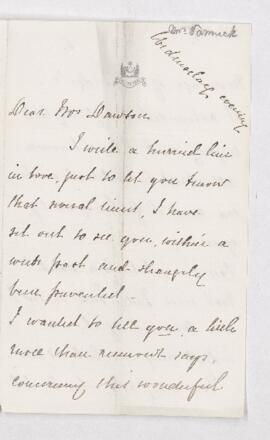 Wednesday evening
Dear Mrs Dawson
I write a hurried line
in love, just to let you know
that several times, I have
set out to see you, within a
week past and strangely
been prevented -
I wanted to tell you a little
more than rumour says,
concerning this wonderful